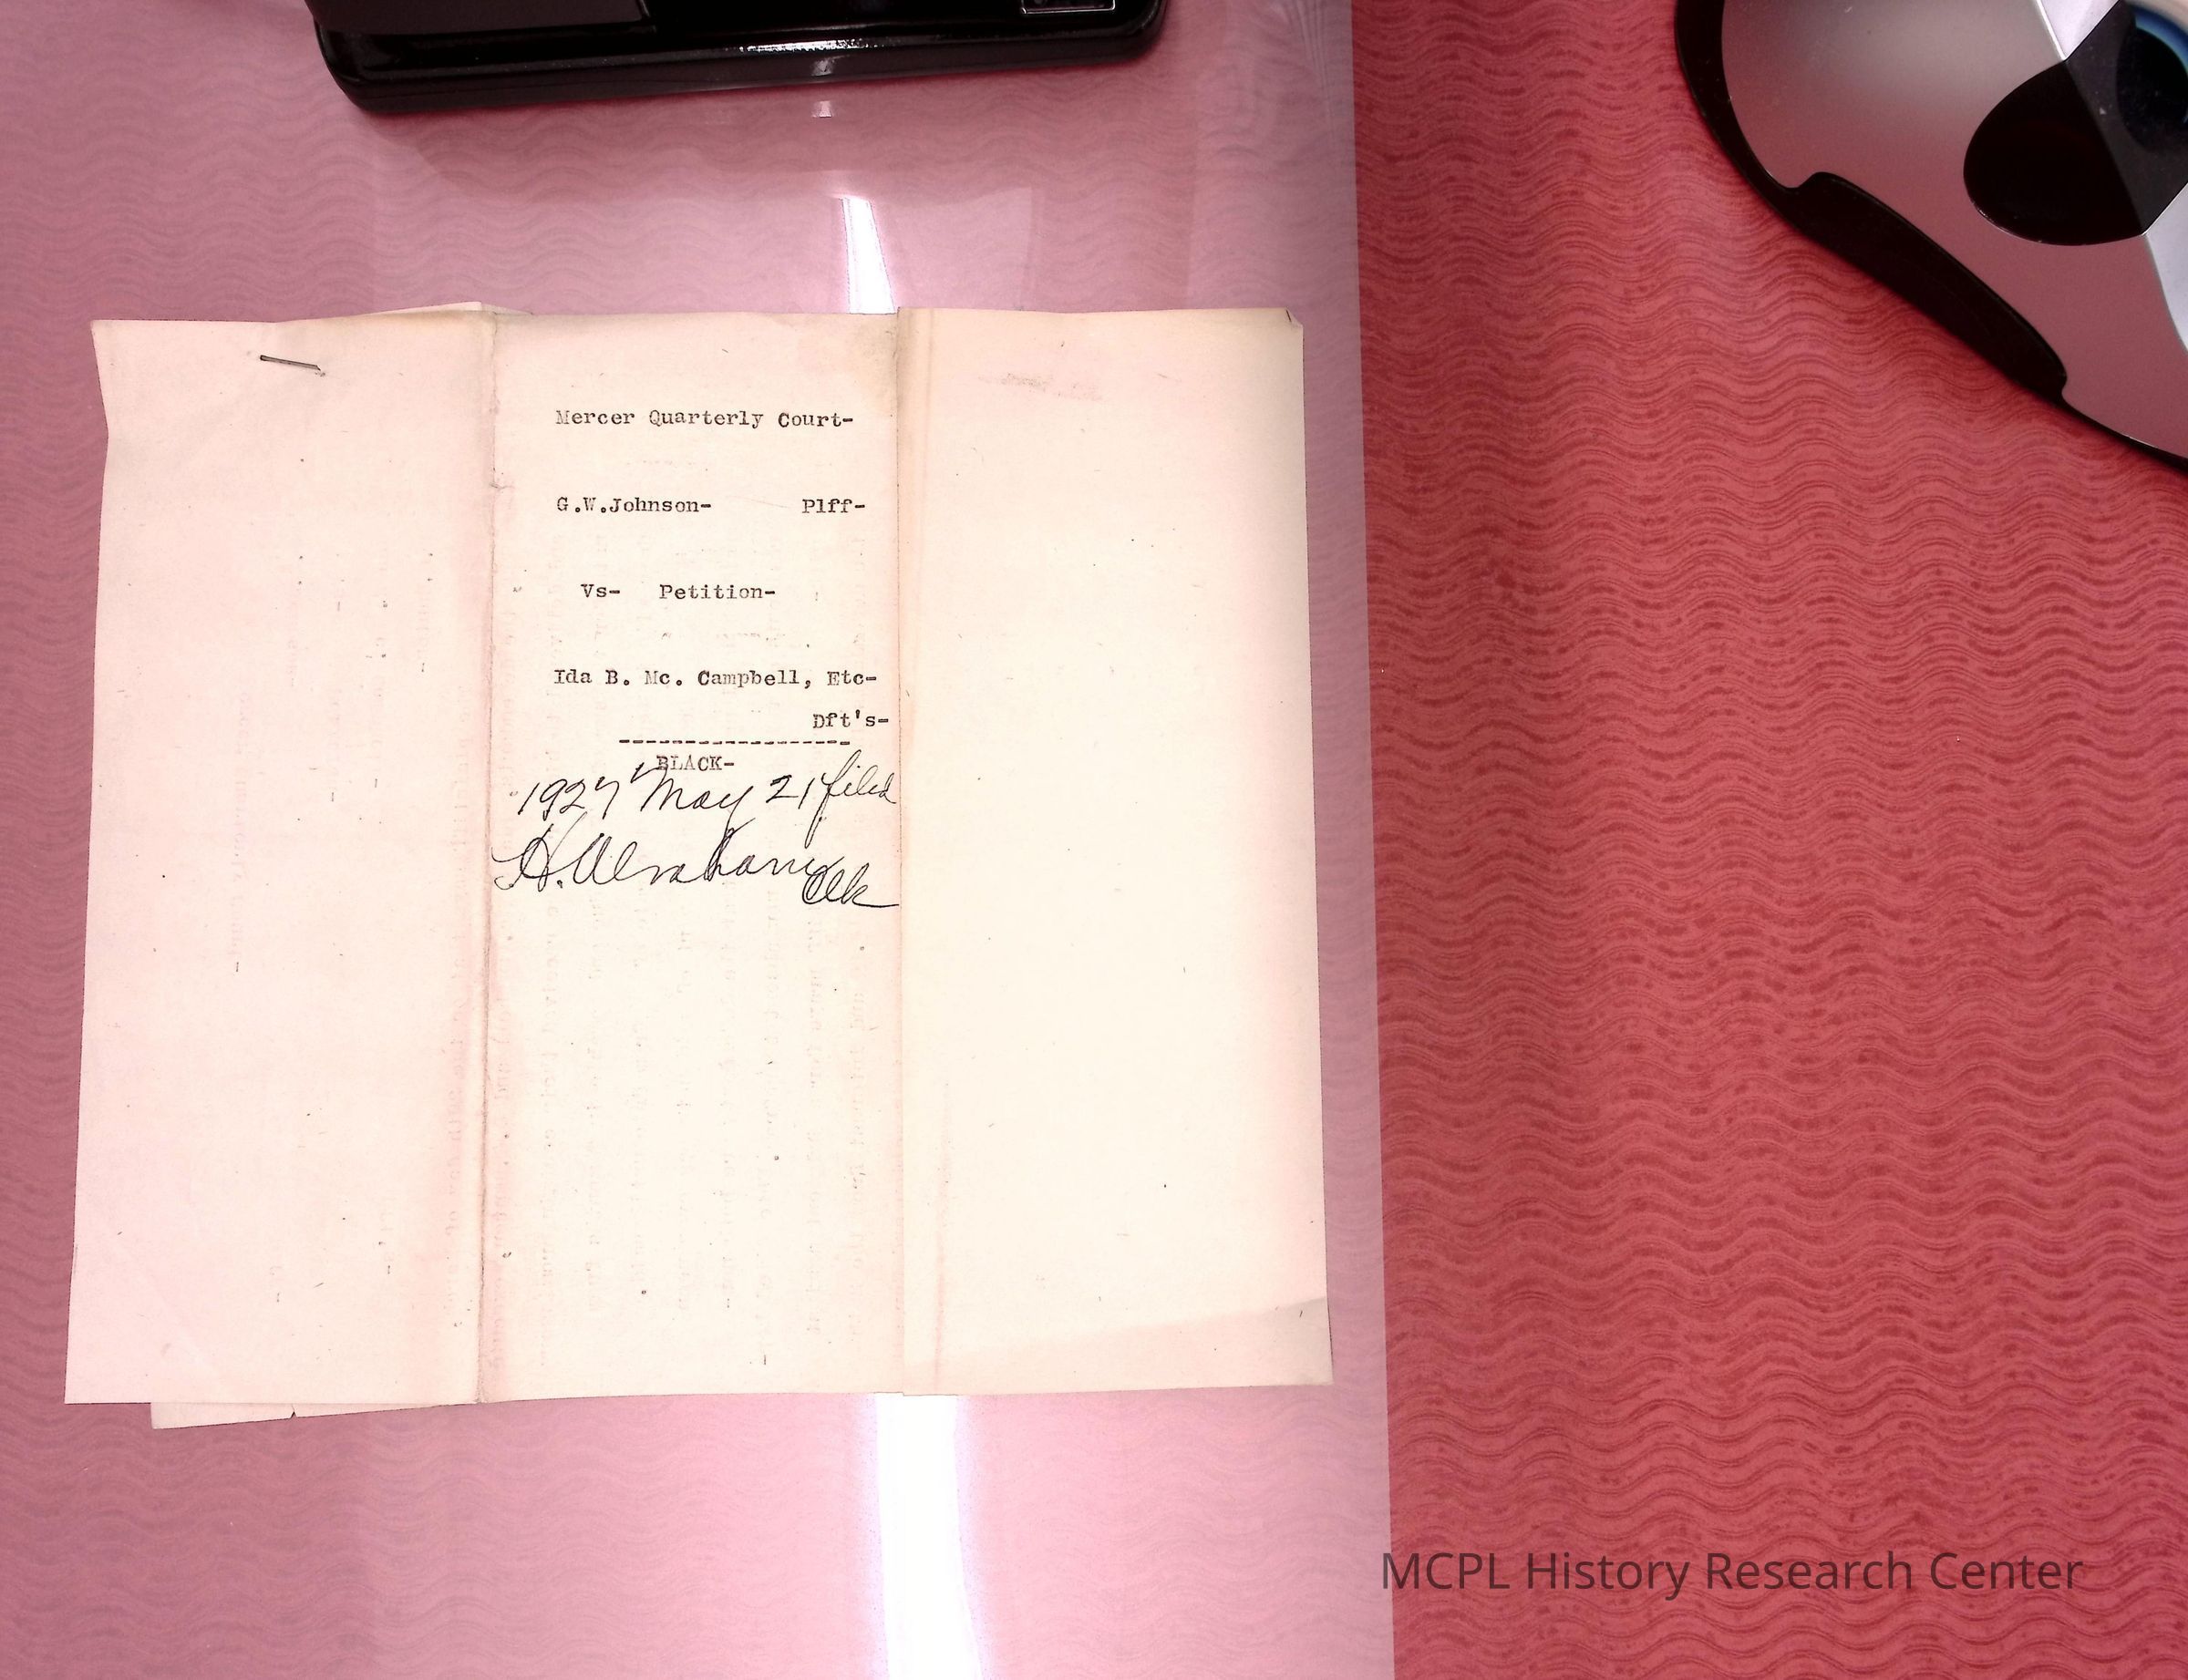 Mercer Quarterly Court-
G.W.Johnson- Plff-
Vs- Petition-
Ida B. Mc. Campbell, Etc-
Dft's-
-----------------
BLACK-
1927 May 21 filed
H. Abraham Clk
MCPL History Research Center